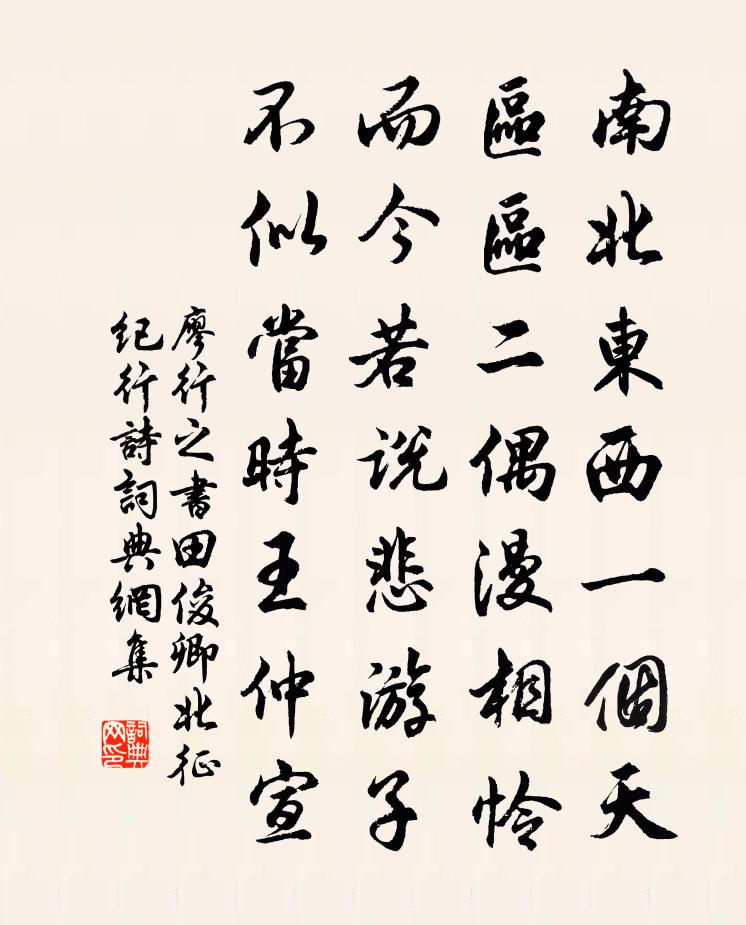 南北東西一個天
區區二偶漫相憐
而今若説悲游子
不似當時王仲宣
廖行之書田俊卿北征
紀行詩詞典網集
詞典
网印